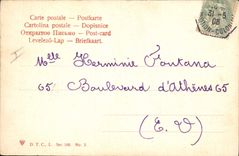 Carte postale - Postkarte
Cartolina postale - Dopisnice
Открытое Письмо - Post-card
Levelező-Lap - Briefkaart.
Mlle Herminie Fontana
65 Boulevard d'Athènes 65
(E. V)
D. T. C., L. Ser. No.